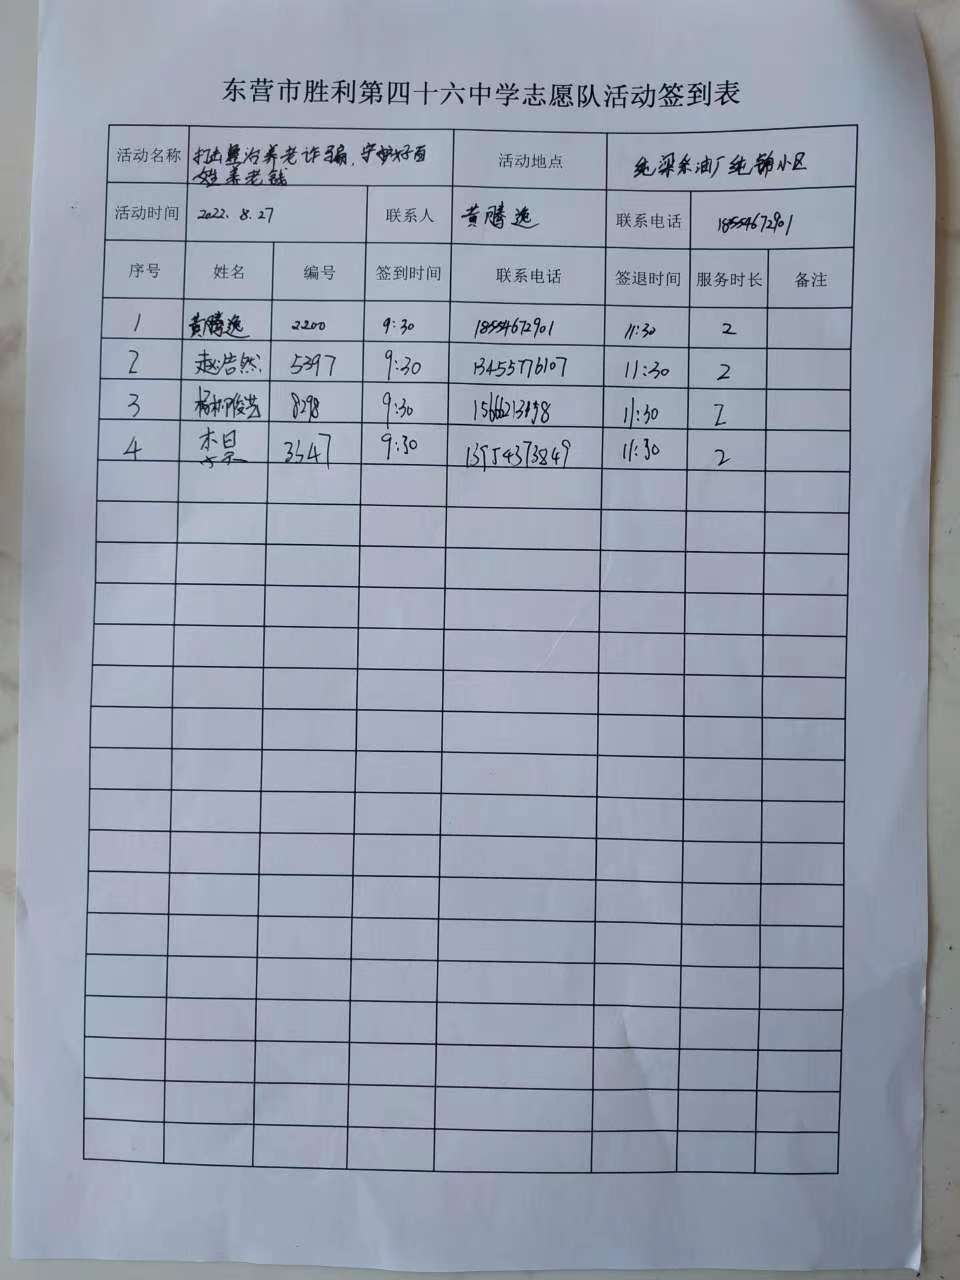 东营市胜利第四十六中学志愿队活动签到表
活动名称 打击整治养老诈骗,守护好百 活动地点 纯梁采油厂纯锦小区
姓养老钱
活动时间 2022.8.27 联系人 黄腾逸 联系电话 18554672901
序号 姓名 编号 签到时间 联系电话 签退时间 服务时长 备注
1 黄腾逸 2200 9:30 18554672901 11:30 2
2 赵浩然 5397 9:30 13455776107 11:30 2
3 8298 9:30 11:30 2
4 9:30 13954373849 11:30 2